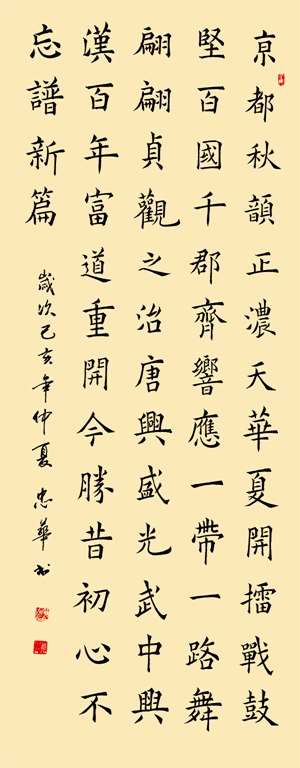 京都秋韻正濃天華夏開擂戰鼓
堅百國千郡齊響應一帶一路舞
翩翩貞觀之治唐興盛光武中興
漢百年富道重開今勝昔初心不
忘譜新篇
歲次己亥年仲夏忠華书